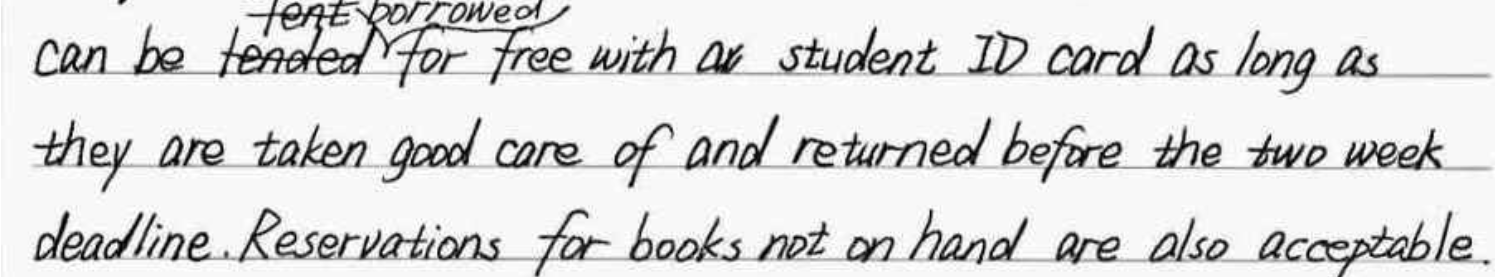 borrowed
can be for free with a student ID card as long as
they are taken good care of and returned before the two week
deadline. Reservations for books not on hand are also acceptable.